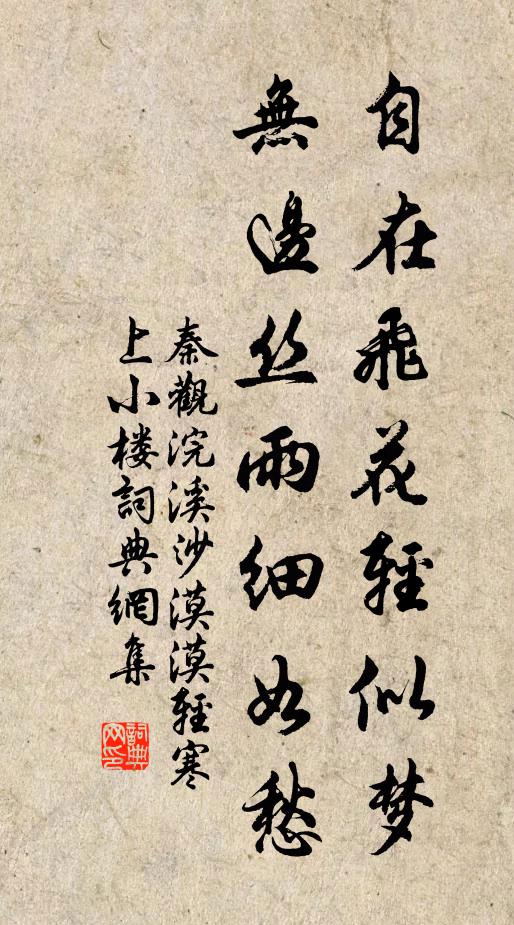 自在飛花輕似梦
無邊丝雨細如愁
秦觀浣溪沙漠漠輕寒
上小楼詞典網集
詞典
网印